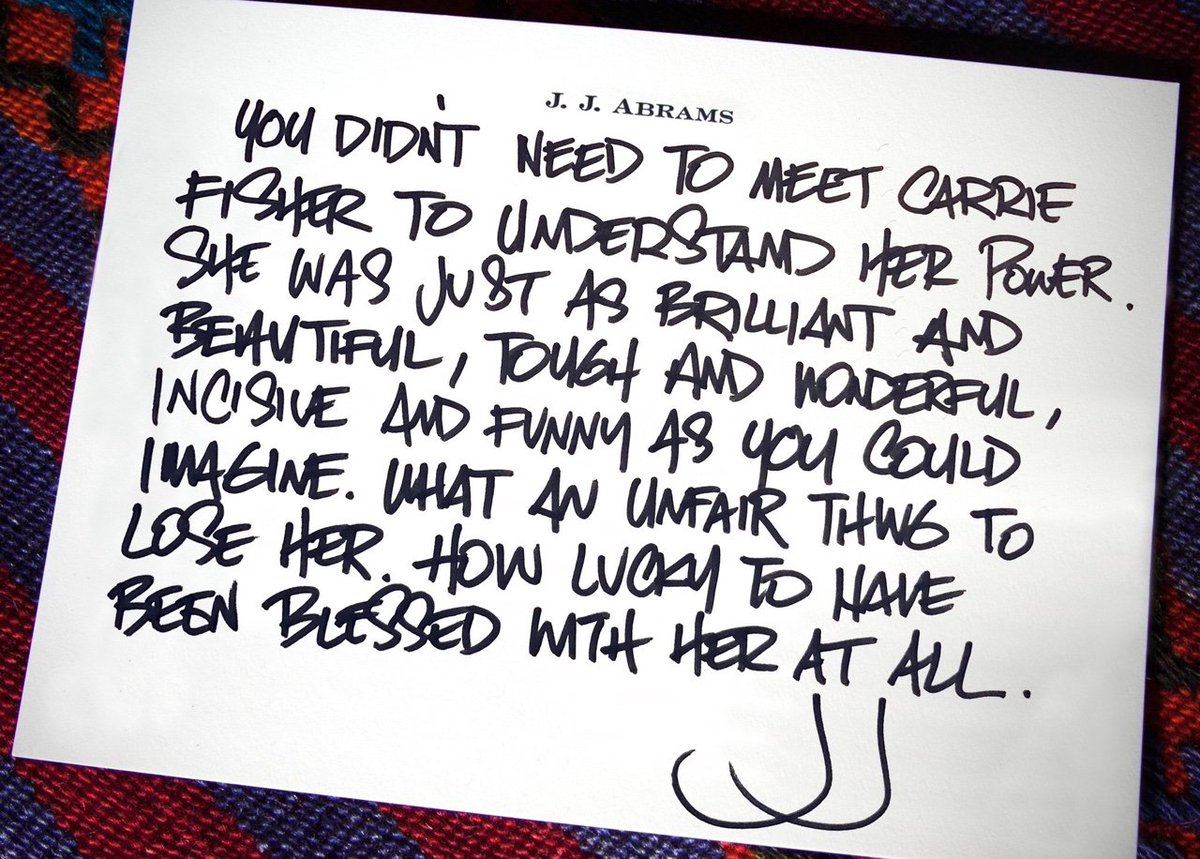 J. J. ABRAMS
YOU DIDN'T NEED TO MEET CARRIE
FISHER TO UNDERSTAND HER POWER.
SHE WAS JUST AS BRILLIANT AND
BEAUTIFUL, TOUGH AND WONDERFUL,
INCISIVE AND FUNNY AS YOU COULD
IMAGINE. WHAT AN UNFAIR THING TO
LOSE HER. HOW LUCKY TO HAVE
BEEN BLESSED WITH HER AT ALL.
JJ